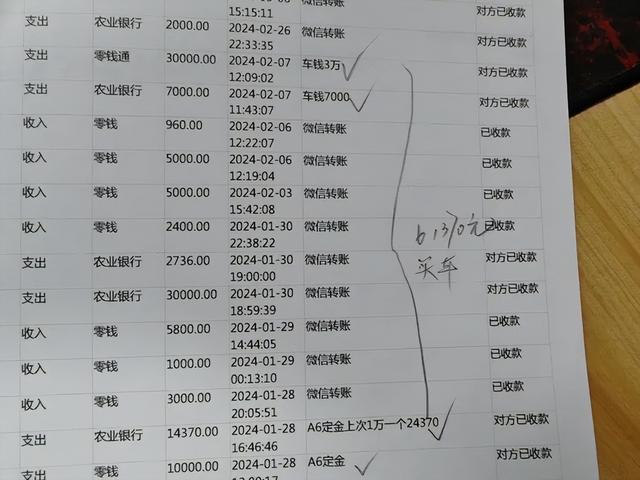 15:15:11 微信转账 对方已收款
支出 农业银行 2000.00 2024-02-26 22:33:35 微信转账 对方已收款
支出 零钱通 30000.00 2024-02-07 12:09:02 车钱3万 对方已收款
支出 农业银行 7000.00 2024-02-07 11:43:07 车钱7000 对方已收款
收入 零钱 960.00 2024-02-06 12:22:07 微信转账 已收款
收入 零钱 5000.00 2024-02-06 12:19:04 微信转账 已收款
收入 零钱 5000.00 2024-02-03 15:42:08 微信转账 已收款
收入 零钱 2400.00 2024-01-30 22:38:22 微信转账 已收款
61370元
买车
支出 农业银行 2736.00 2024-01-30 19:00:00 微信转账 对方已收款
支出 农业银行 30000.00 2024-01-30 18:59:39 微信转账 对方已收款
收入 零钱 5800.00 2024-01-29 14:44:05 微信转账 已收款
收入 零钱 1000.00 2024-01-29 00:13:10 微信转账 已收款
收入 零钱 3000.00 2024-01-28 20:05:51 微信转账 已收款
支出 农业银行 14370.00 2024-01-28 16:46:46 A6定金上次1万一个24370 对方已收款
支出 零钱 10000.00 2024-01-28 A6定金 对方已收款